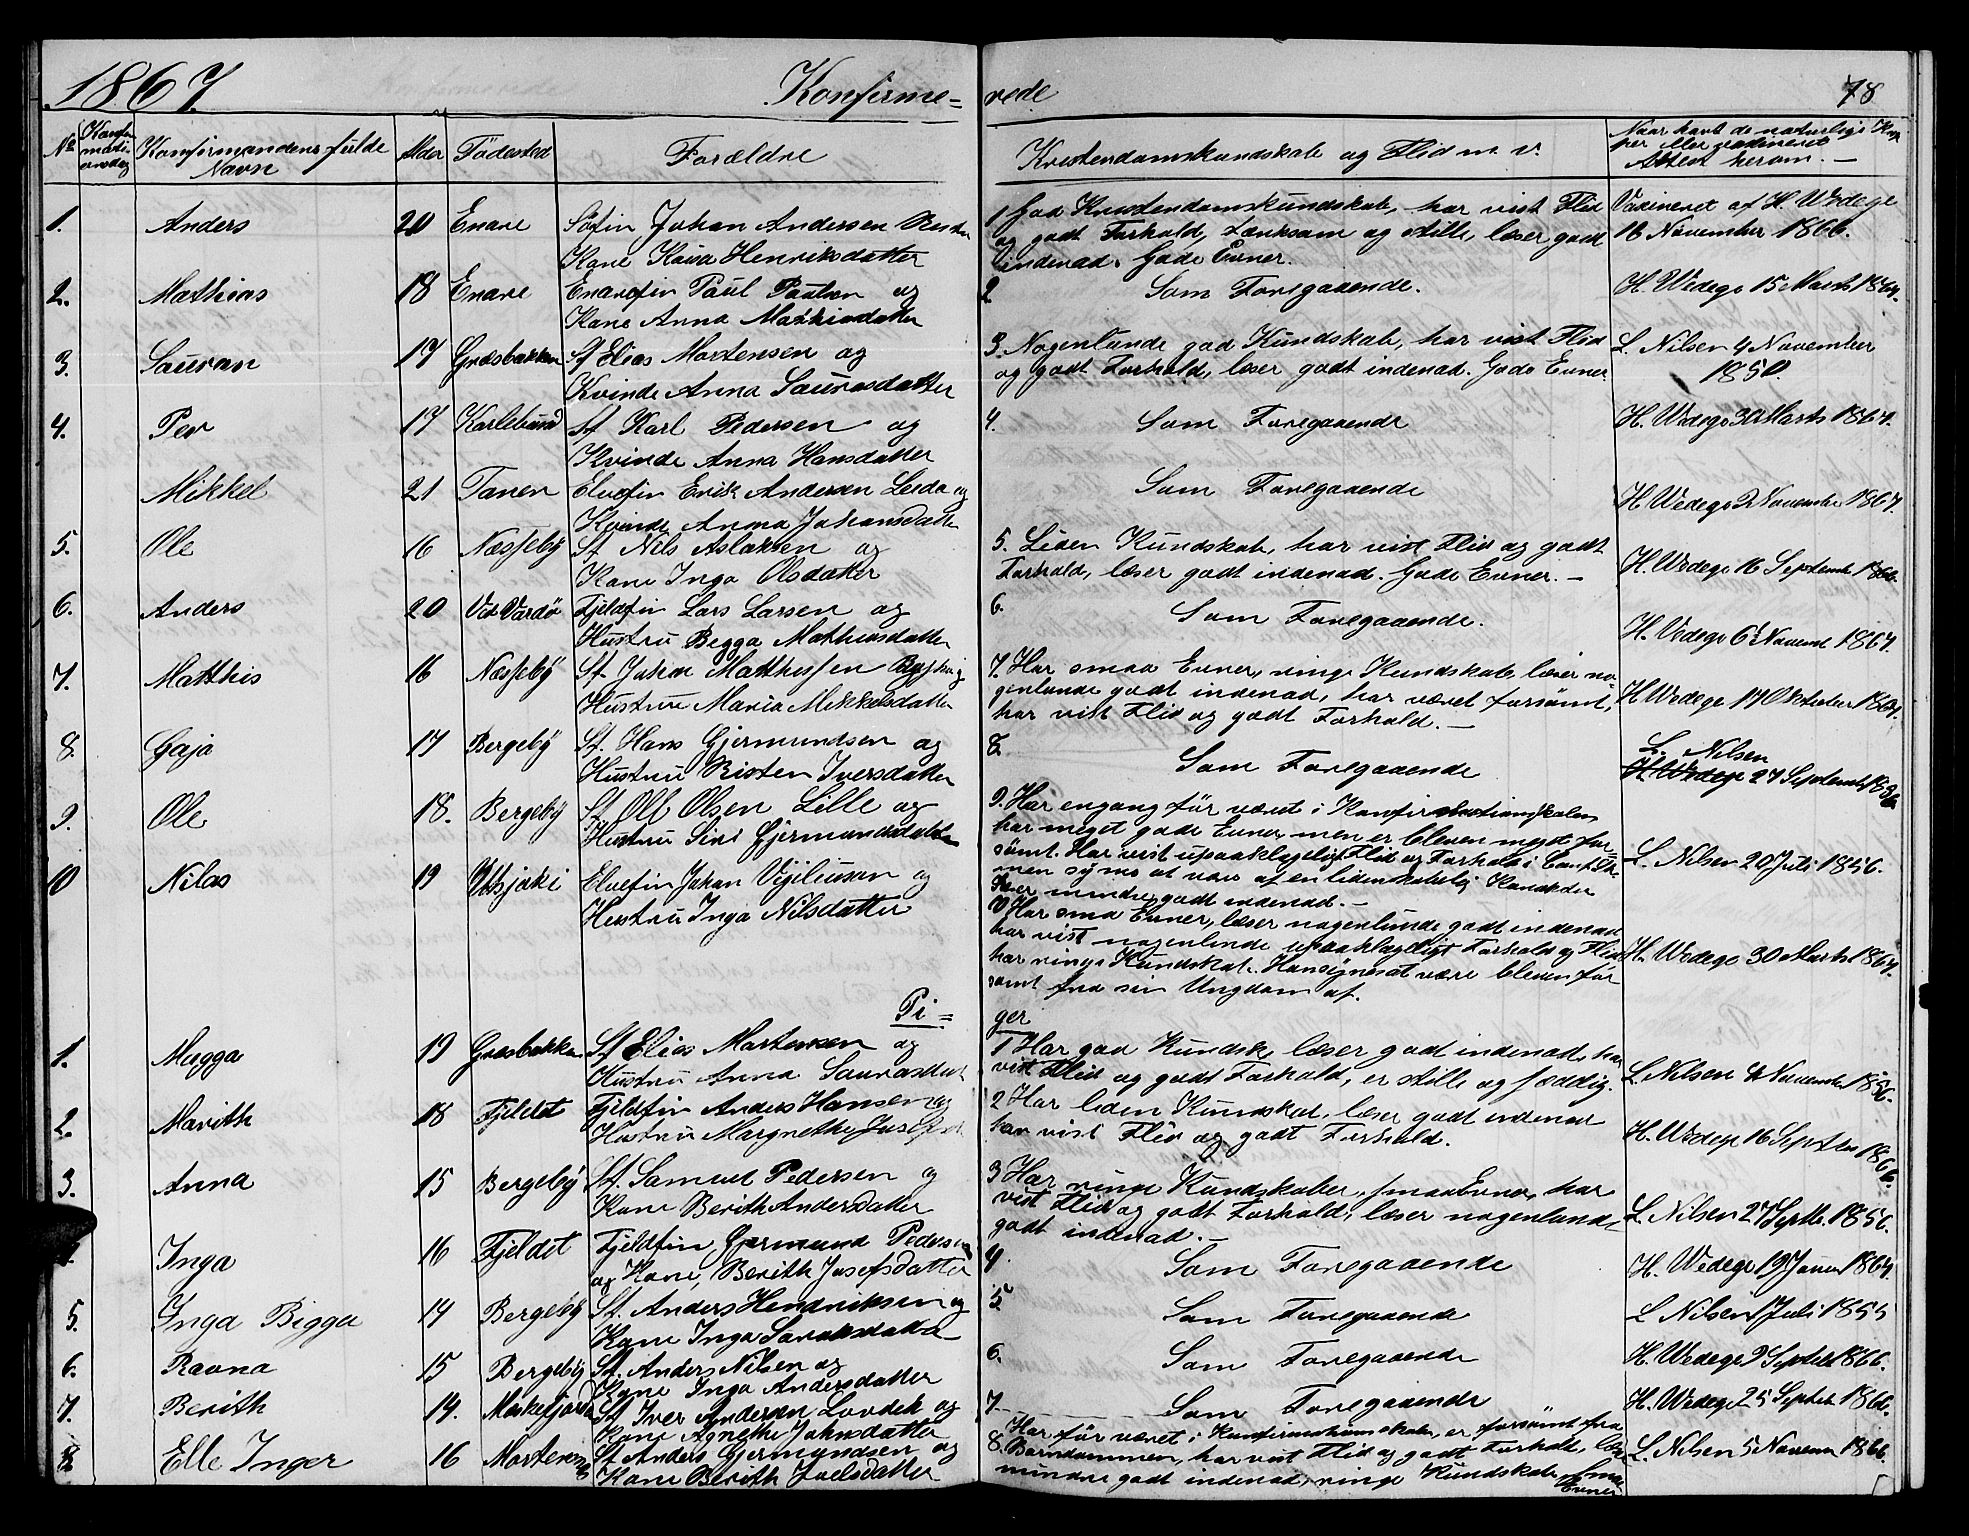 1867. Konfirme=
No Konfir mati onsdag Konfirmandens fulde Navn Alder Födested Forældre
1. Anders 20 Enare Söfin Johan Andersen
Kone Kaisa Henriksdatter
2. Mathias 18 Enare Enarefin Paul Paulsen og
Kone Anna Mathiasdatter
3. Sauran 17 Græsbakken Sf Elias Mortensen og
Kvinde Anna Saurasdatter
4. Per 17 Karlebund Sf. Karl Pedersen og
Kvinde Anna Hansdatter
Mikkel 21 Tanen Elvefin Erik Andersen Leida og
Kvinde Anna Johansdatter
5. Ole 16 Næsseby Sf. Nils Aslaksen og
Kone Inga Olsdatter
6. Anders 20 Vid Vardö Fjeldfin Lars Larsen og
Hustru Begga Mathiasdatter
7. Matthis 16 Næsseby Sf. Johan Mathissen og
Hustru Maria Mikkelsdatter
8. Gaja 17 Bergeby Sf. Hans Gjermundsen og
Hustru Risten Iversdatter
9. Ole 18. Bergeby Sf. Ole Olsen Lille og
Hustru Siri Gjermundsdatter
10 Nilas 19 Utsjoki Elvefin Johan Vigiliusen og
Hustru Inga Nilsdatter
Pi=
1. Magga 19 Græsbakken Sf Elias Mortensen og
Hustru Anna Saurasdat
2. Marith 18 Fjeldet Fjeldfin Anders Hansen og
Hustru Margrethe
3. Anna 15 Bergeby Sf. Samuel Pedersen og
Kone Berith Andersdatter
4. Inga 16 Fjeldet Fjeldfin Gjermund Pedersen
og Kone, Berith Josefsdatter
5. Inga Bigga 14 Bergeby Sf. Anders Hendriksen og
Kone Inga
6. Ravna 15 Bergeby Sf. Anders Nilsen og
Kone Inga Andersdatter
7. Berith 14. Meskefjord Sf. Iver Andersen Lovdek og
Kone Agnethe Johnsdatter
8 Elle Inger 16 Mortensnes Sf. Anders Gjermundsen og
Kone Berith Joelsdatter
rede 78
Kristendomskundskab og Flid m. v. Naar havt de naturlige Kop
per eller vaxineret
Attest herom. —
1 God Kristendomskundskab, har vist Flid Vaxineret af H. Wedege
og godt Forhold, Tænksom og stille, læser godt 16 November 1866.
indenad. Gode Evner.
2 Som Foregaaende. H. Wedege 15 Marts 1867.
3. Nogenlunde god Kundskab, har vist Flid L. Nilsen 4 November
og godt Forhold, læser godt indenad. Gode Evner. 1850.
4. Som Foregaaende H. Wedege 30 Marts 1867.
Som Foregaaende H. Wedege 2 November 1867.
5. Liden Kundskab, har vist Flid og godt
Forhold, læser godt indenad. Gode Evner. — H. Wedege 16 Septemb 1866.
6. Som Foregaaende. H. Wedege 6 Novemb 1867.
7. Har smaa Evner, ringe Kundskab, læser no-
genlunde godt indenad, har været forsömt, H. Wedege 17 Oktober 1867.
har vist Flid og godt Forhold. —
8. Som Foregaaende L. Nilsen
H. Wedege 27 Septemb 1856.
9. Har engang för været i Konfirmationsskolen
har meget gode Evner, men er bleven meget for=
sömt. Har vist upaaklageligt Flid og Forhold i L. Nilsen 20 Juli 1856.
men synes at være af en lidenskabelig Karakter
læser mindre godt indenad. —
10 Har smaa Evner, læser nogenlunde godt indenad
har vist nogenlunde upaaklageligt Forhold og Flid H. Wedege 30 Marts 1867.
har ringe Kundskab. Han synes at være bleven for
sömt fra sin Ungdom af.
ger
1 Har god Kundsk, læser godt indenad, har
vist Flid og godt Forhold, er stille og L. Nilsen 4 Novemb 1856.
2 Har liden Kundskab, læser godt indenad
har vist Flid og godt Forhold. H. Wedege 16 Septem 1866.
3 Har ringe Kundskaber, smaa Evner, har
vist Flid og godt Forhold, læser nogenlunde L. Nilsen 27 Septb. 1856.
godt indenad. —
4 Som Foregaaende H. Wedege 19 Januar 1867.
5. Som Foregaaende L Nilsen 1 Juli 1855
6. Som Foregaaende H. Wedege 9 Septeb 1866.
7. Som Foregaaende H. Wedege 25 Septeb 1866.
8. Har för været i Konfirmationsskolen, er forsömt fra
Barndommen, har vist Flid og godt Forhold, læser L. Nilsen 5 Novem 1866.
mindre godt indenad, ringe Kundskab, Smaa
Evner